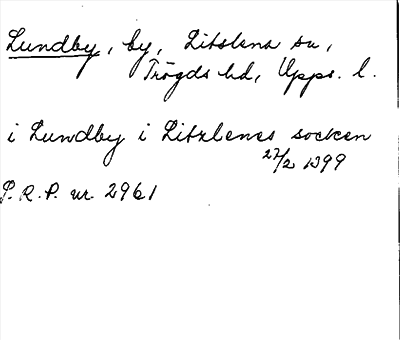 Lundby, by, Litslena sn,
Trögds hd, Upps. l.
i Lundby i Litzlenes socken
27/2 1399
S.R.P. nr. 2961